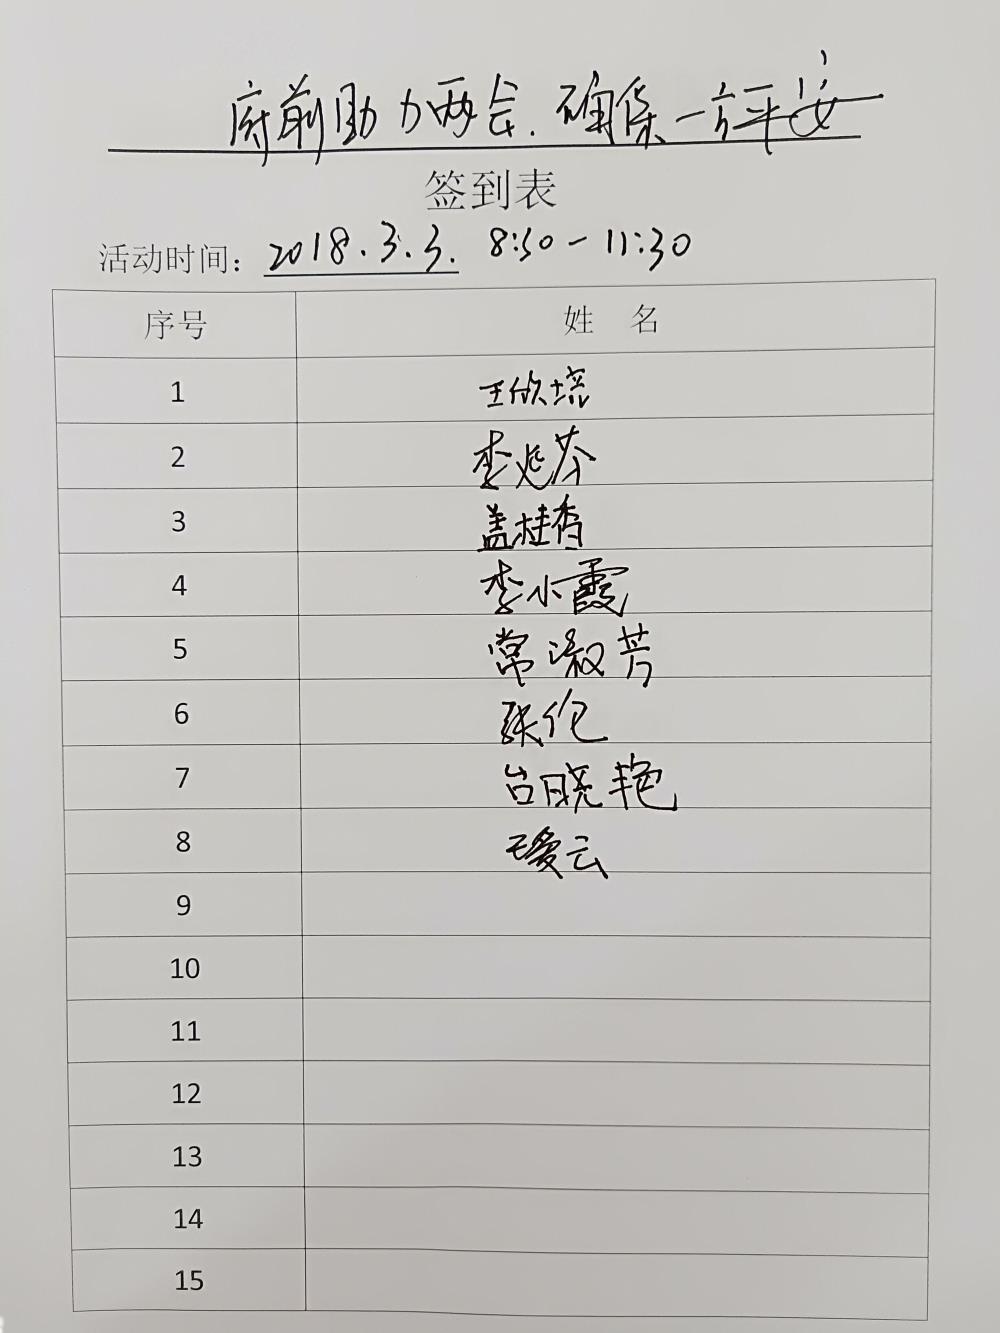 府前助力两会.确保一方平安
签到表
活动时间：2018.3.3. 8:30-11:30
序号 姓 名
1 王欣培
2 李延芬
3 盖桂香
4 李小霞
5 常淑芳
6 张伦
7 台晓艳
8 云
9
10
11
12
13
14
15